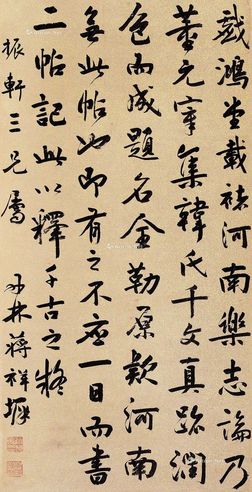 戲鴻堂載褚河南樂志論乃
董元宰集韓氏千文真跡潤
色而成題名全勒原款河南
無此帖也即有之不應一日而書
二帖記此以釋千古之疑
振軒三兄屬 丹林蔣祥墀